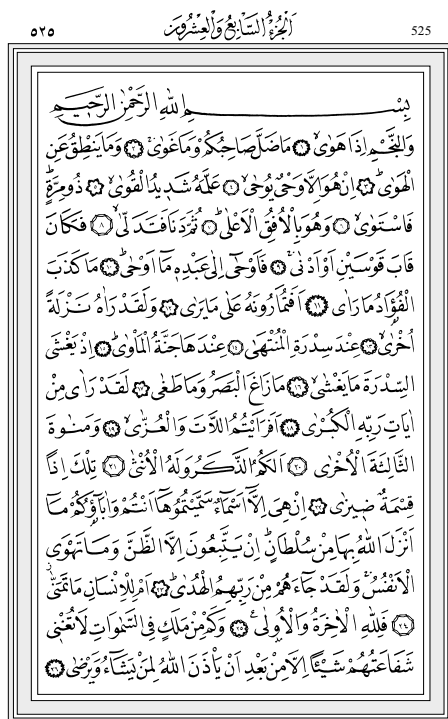 ٥٢٥ اَلْجُزْءُ السَّابِعُ وَالْعِشْرُونَ 525
بِسْمِ اللهِ الرَّحْمٰنِ الرَّحِيمِ
وَالنَّجْمِ اِذَا هَوٰىۙ ﴿١﴾ مَا ضَلَّ صَاحِبُكُمْ وَمَا غَوٰىۚ ﴿٢﴾ وَمَا يَنْطِقُ عَنِ
الْهَوٰىۜ ﴿٣﴾ اِنْ هُوَ اِلَّا وَحْيٌ يُوحٰىۙ ﴿٤﴾ عَلَّمَهُ شَدِيدُ الْقُوٰىۙ ﴿٥﴾ ذُو مِرَّةٍۜ
فَاسْتَوٰىۙ ﴿٦﴾ وَهُوَ بِالْاُفُقِ الْاَعْلٰىۜ ﴿٧﴾ ثُمَّ دَنَا فَتَدَلّٰىۙ ﴿٨﴾ فَكَانَ
قَابَ قَوْسَيْنِ اَوْ اَدْنٰىۚ ﴿٩﴾ فَاَوْحٰٓى اِلٰى عَبْدِهِ مَٓا اَوْحٰىۜ ﴿١٠﴾ مَا كَذَبَ
الْفُؤٰادُ مَا رَاٰى ﴿١١﴾ اَفَتُمَارُونَهُ عَلٰى مَا يَرٰى ﴿١٢﴾ وَلَقَدْ رَاٰهُ نَزْلَةً
اُخْرٰىۙ ﴿١٣﴾ عِنْدَ سِدْرَةِ الْمُنْتَهٰى ﴿١٤﴾ عِنْدَهَا جَنَّةُ الْمَأْوٰىۜ ﴿١٥﴾ اِذْ يَغْشَى
السِّدْرَةَ مَا يَغْشٰىۙ ﴿١٦﴾ مَا زَاغَ الْبَصَرُ وَمَا طَغٰى ﴿١٧﴾ لَقَدْ رَاٰى مِنْ
اٰيَاتِ رَبِّهِ الْكُبْرٰى ﴿١٨﴾ اَفَرَاَيْتُمُ اللَّاتَ وَالْعُزّٰىۙ ﴿١٩﴾ وَمَنٰوةَ
الثَّالِثَةَ الْاُخْرٰى ﴿٢٠﴾ اَلَكُمُ الذَّكَرُ وَلَهُ الْاُنْثٰى ﴿٢١﴾ تِلْكَ اِذًا
قِسْمَةٌ ضِيزٰى ﴿٢٢﴾ اِنْ هِيَ اِلَّٓا اَسْمَٓاءٌ سَمَّيْتُمُوهَٓا اَنْتُمْ وَاٰبَٓاؤُ۬كُمْ مَٓا
اَنْزَلَ اللهُ بِهَا مِنْ سُلْطَانٍۜ اِنْ يَتَّبِعُونَ اِلَّا الظَّنَّ وَمَا تَهْوَى
الْاَنْفُسُۚ وَلَقَدْ جَٓاءَهُمْ مِنْ رَبِّهِمُ الْهُدٰىۜ ﴿٢٣﴾ اَمْ لِلْاِنْسَانِ مَا تَمَنّٰىۘ
﴿٢٤﴾ فَلِلّٰهِ الْاٰخِرَةُ وَالْاُو۫لٰى۟ ﴿٢٥﴾ وَكَمْ مِنْ مَلَكٍ فِي السَّمٰوَاتِ لَا تُغْنِي
شَفَاعَتُهُمْ شَيْـًٔا اِلَّا مِنْ بَعْدِ اَنْ يَأْذَنَ اللهُ لِمَنْ يَشَٓاءُ وَيَرْضٰى ﴿٢٦﴾